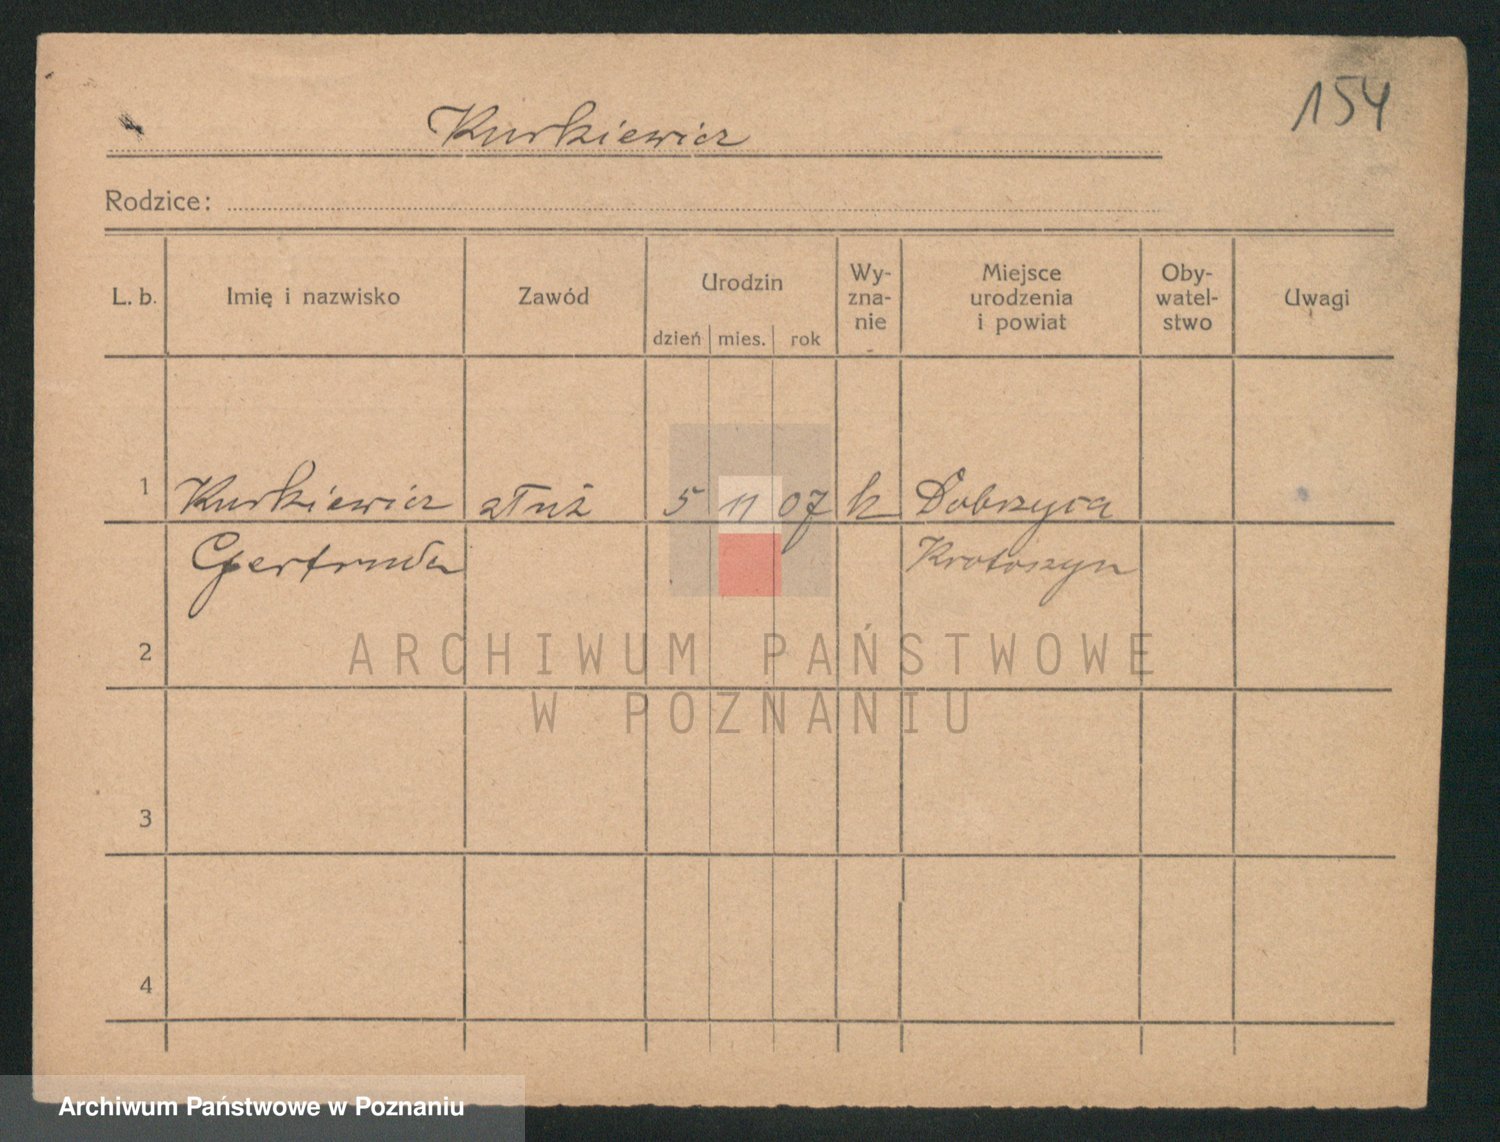 154
Kurkiewicz
Rodzice:
L. b. Imię i nazwisko Zawód Urodzin dzień mies. rok Wy-zna-nie Miejsce urodzenia i powiat Oby-watel-stwo Uwagi
1 Kurkiewicz służ 5 11 07 k Dobrzyca
Gertruda Krotoszyn
2
ARCHIWUM PAŃSTWOWE
W POZNANIU
3
4
Archiwum Państwowe w Poznaniu